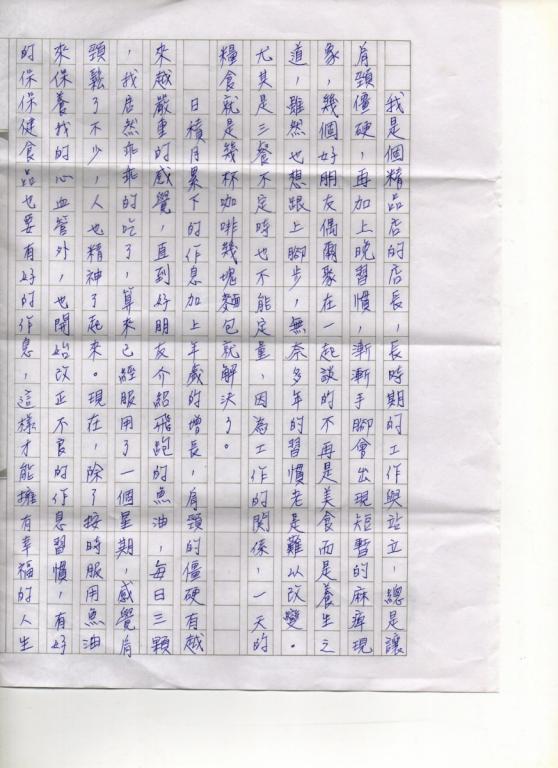 我是個精品店的店長，長時期的工作與站立，總是讓
肩頸僵硬，再加上晚習慣，漸漸手腳會出現短暫的麻痺現
象，幾個好朋友偶爾聚在一起談的不再是美食而是養生之
道，雖然也想跟上腳步，無奈多年的習慣老是難以改變。
尤其是三餐不定時也不能定量，因為工作的関係，一天的
糧食就是幾杯咖啡幾塊麵包就解決了。
日積月累下的作息加上年歲的增長，肩頸的僵硬有越
來越嚴重的感覺，直到好朋友介紹飛跑的魚油，每日三顆
，我居然乖乖的吃了，算來已經服用了一個星期，感覺肩
頸鬆了不少，人也精神了起來。現在，除了按時服用魚油
來保養我的心血管外，也開始改正不良的作息習慣，有好
的保保健食品也要有好的作息，這樣才能擁有幸福的人生